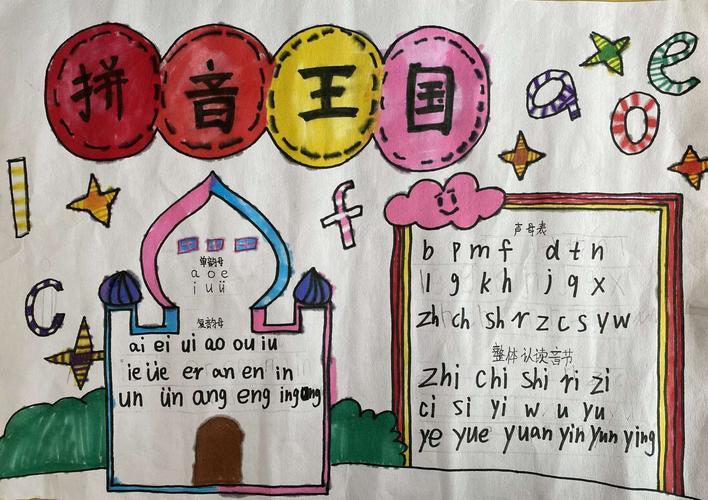 拼音王国
a
o
e
l
f
c
单韵母
a o e
i u ü
复韵母
ai ei ui ao ou iu
ie üe er an en in
un ün ang eng ing ong
声母表
b p m f d t n
l g k h j q x
zh ch sh r z c s y w
整体认读音节
zhi chi shi ri zi
ci si yi w u yu
ye yue yuan yin yun ying